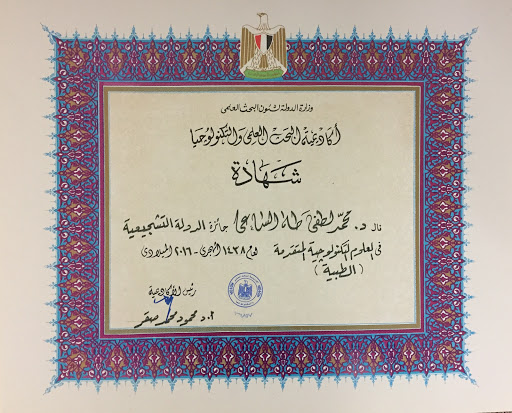 وزارة الدولة لشئون البحث العلمى
أكاديمية البحث العلمى والتكنولوجيا
شهادة
نال د. محمد لطفى طه الساعى جائزة الدولة التشجيعية
فى العلوم التكنولوجية المتقدمة لعام ١٤٣٨ الهجرى - ٢٠١٦ الميلادى
(الطبية)
رئيس الأكاديمية
أ.د محمود محمد صقر